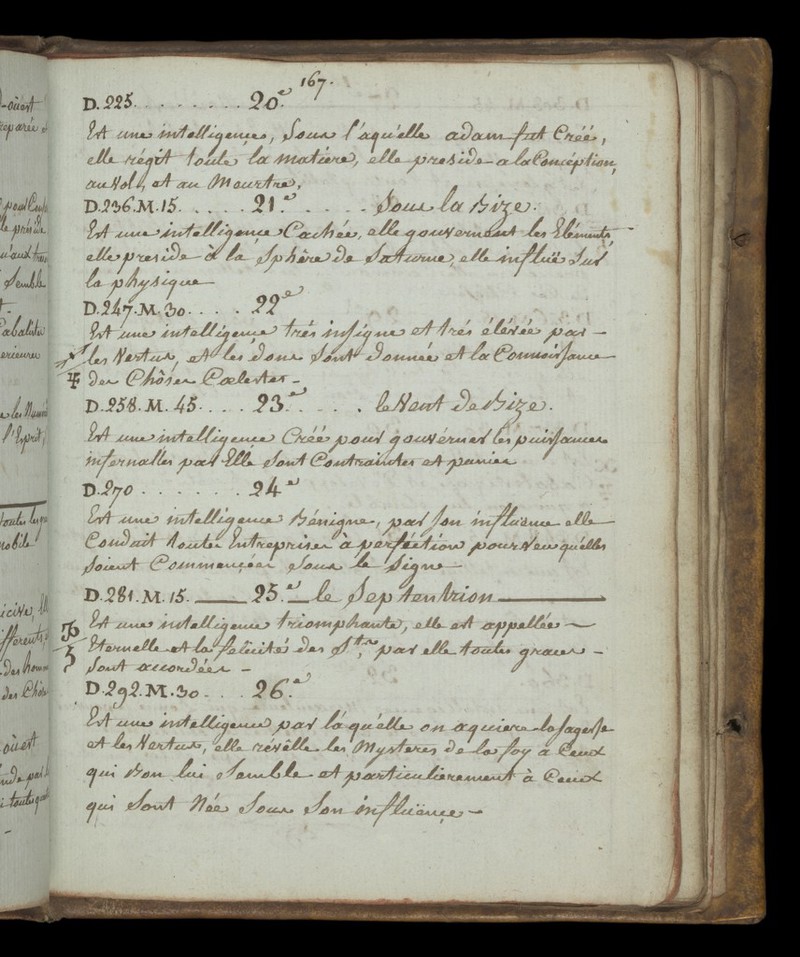 167.
D. 225. . . . . . . . . 20.e
Est une intelligence, Sous l'aquelle adam fut Créé,
elle régit toute la matière, elle preside a la Conception,
au Vol, et au Meurtre,
D. 236. M. 15. . . . . . 21.e . . . . . Sous la Bize.
Est une intelligence Cachée, elle gouvernent les Eléments,
elle preside à la Sphère de Saturne, elle influë Sur
la physique
D. 247. M. 30. . . . . 22.e
Est une intelligence trés insigne et trés élévée par –
les Vertus, et les dons sont donnée et la Connoissance
Des Chôses Cœlestes –
D. 258. M. 45. . . . . 23.e . . . . . le Vent de Bize.
Est une intelligence Créé pour gouvérner les puissances
infernalles par Elle Sont Contraintes et punies
D. 270 . . . . . . . 24.e
Est une intelligence Bénigne, par Son influence elle
Conduit toutes Entreprises à perfection pour Veu qu'elles
Soient Commençées sous le Signe
D. 281. M. 15. — 25.e — le Septentrion —
Est une intelligence triomphante, elle est appellée –
Eternelle et la félicité des Sts, par elle toutes graces –
Sont accordées –
D. 292. M. 30. . . . 26.e
Est une intelligence par láquélle on aquiere la sagesse
et les Vertus, elle révélle les Mysteres de la foy à Ceux
qui Bon lui Semble et particulierement à Ceux
qui Sont Née Sous Son influënce –